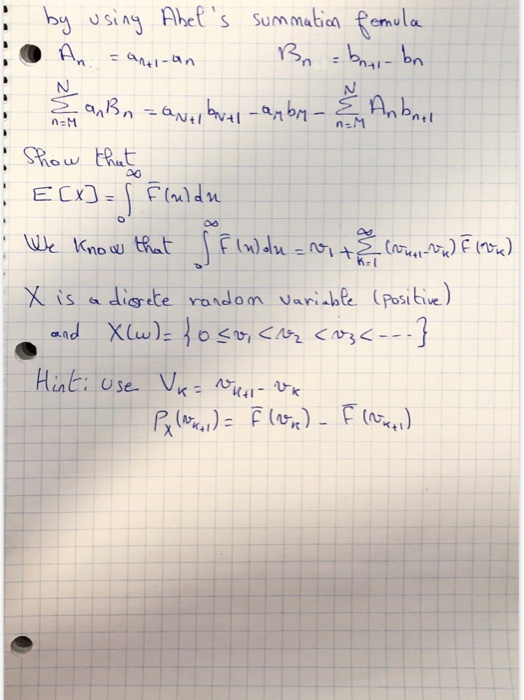 by using Abel's summation femula
Aₙ = aₙ₊₁-aₙ Bₙ = bₙ₊₁- bₙ
N N
Σ aₙBₙ = a_{N+1} b_{N+1} - a_M b_M - Σ Aₙ bₙ₊₁
n=M n=M
Show that
E[X] = ∫₀^∞ F̄(u) du
We know that ∫₀^∞ F̄(u) du = v₁ + Σ_{k=1}^∞ (v_{k+1}-v_k) F̄(v_k)
X is a disrete random variable (positive)
and X(ω) = {0 ≤ v₁ < v₂ < v₃ < ---}
Hint: use V_k = v_{k+1} - v_k
P_X(v_{k+1}) = F̄(v_k) - F̄(v_{k+1})